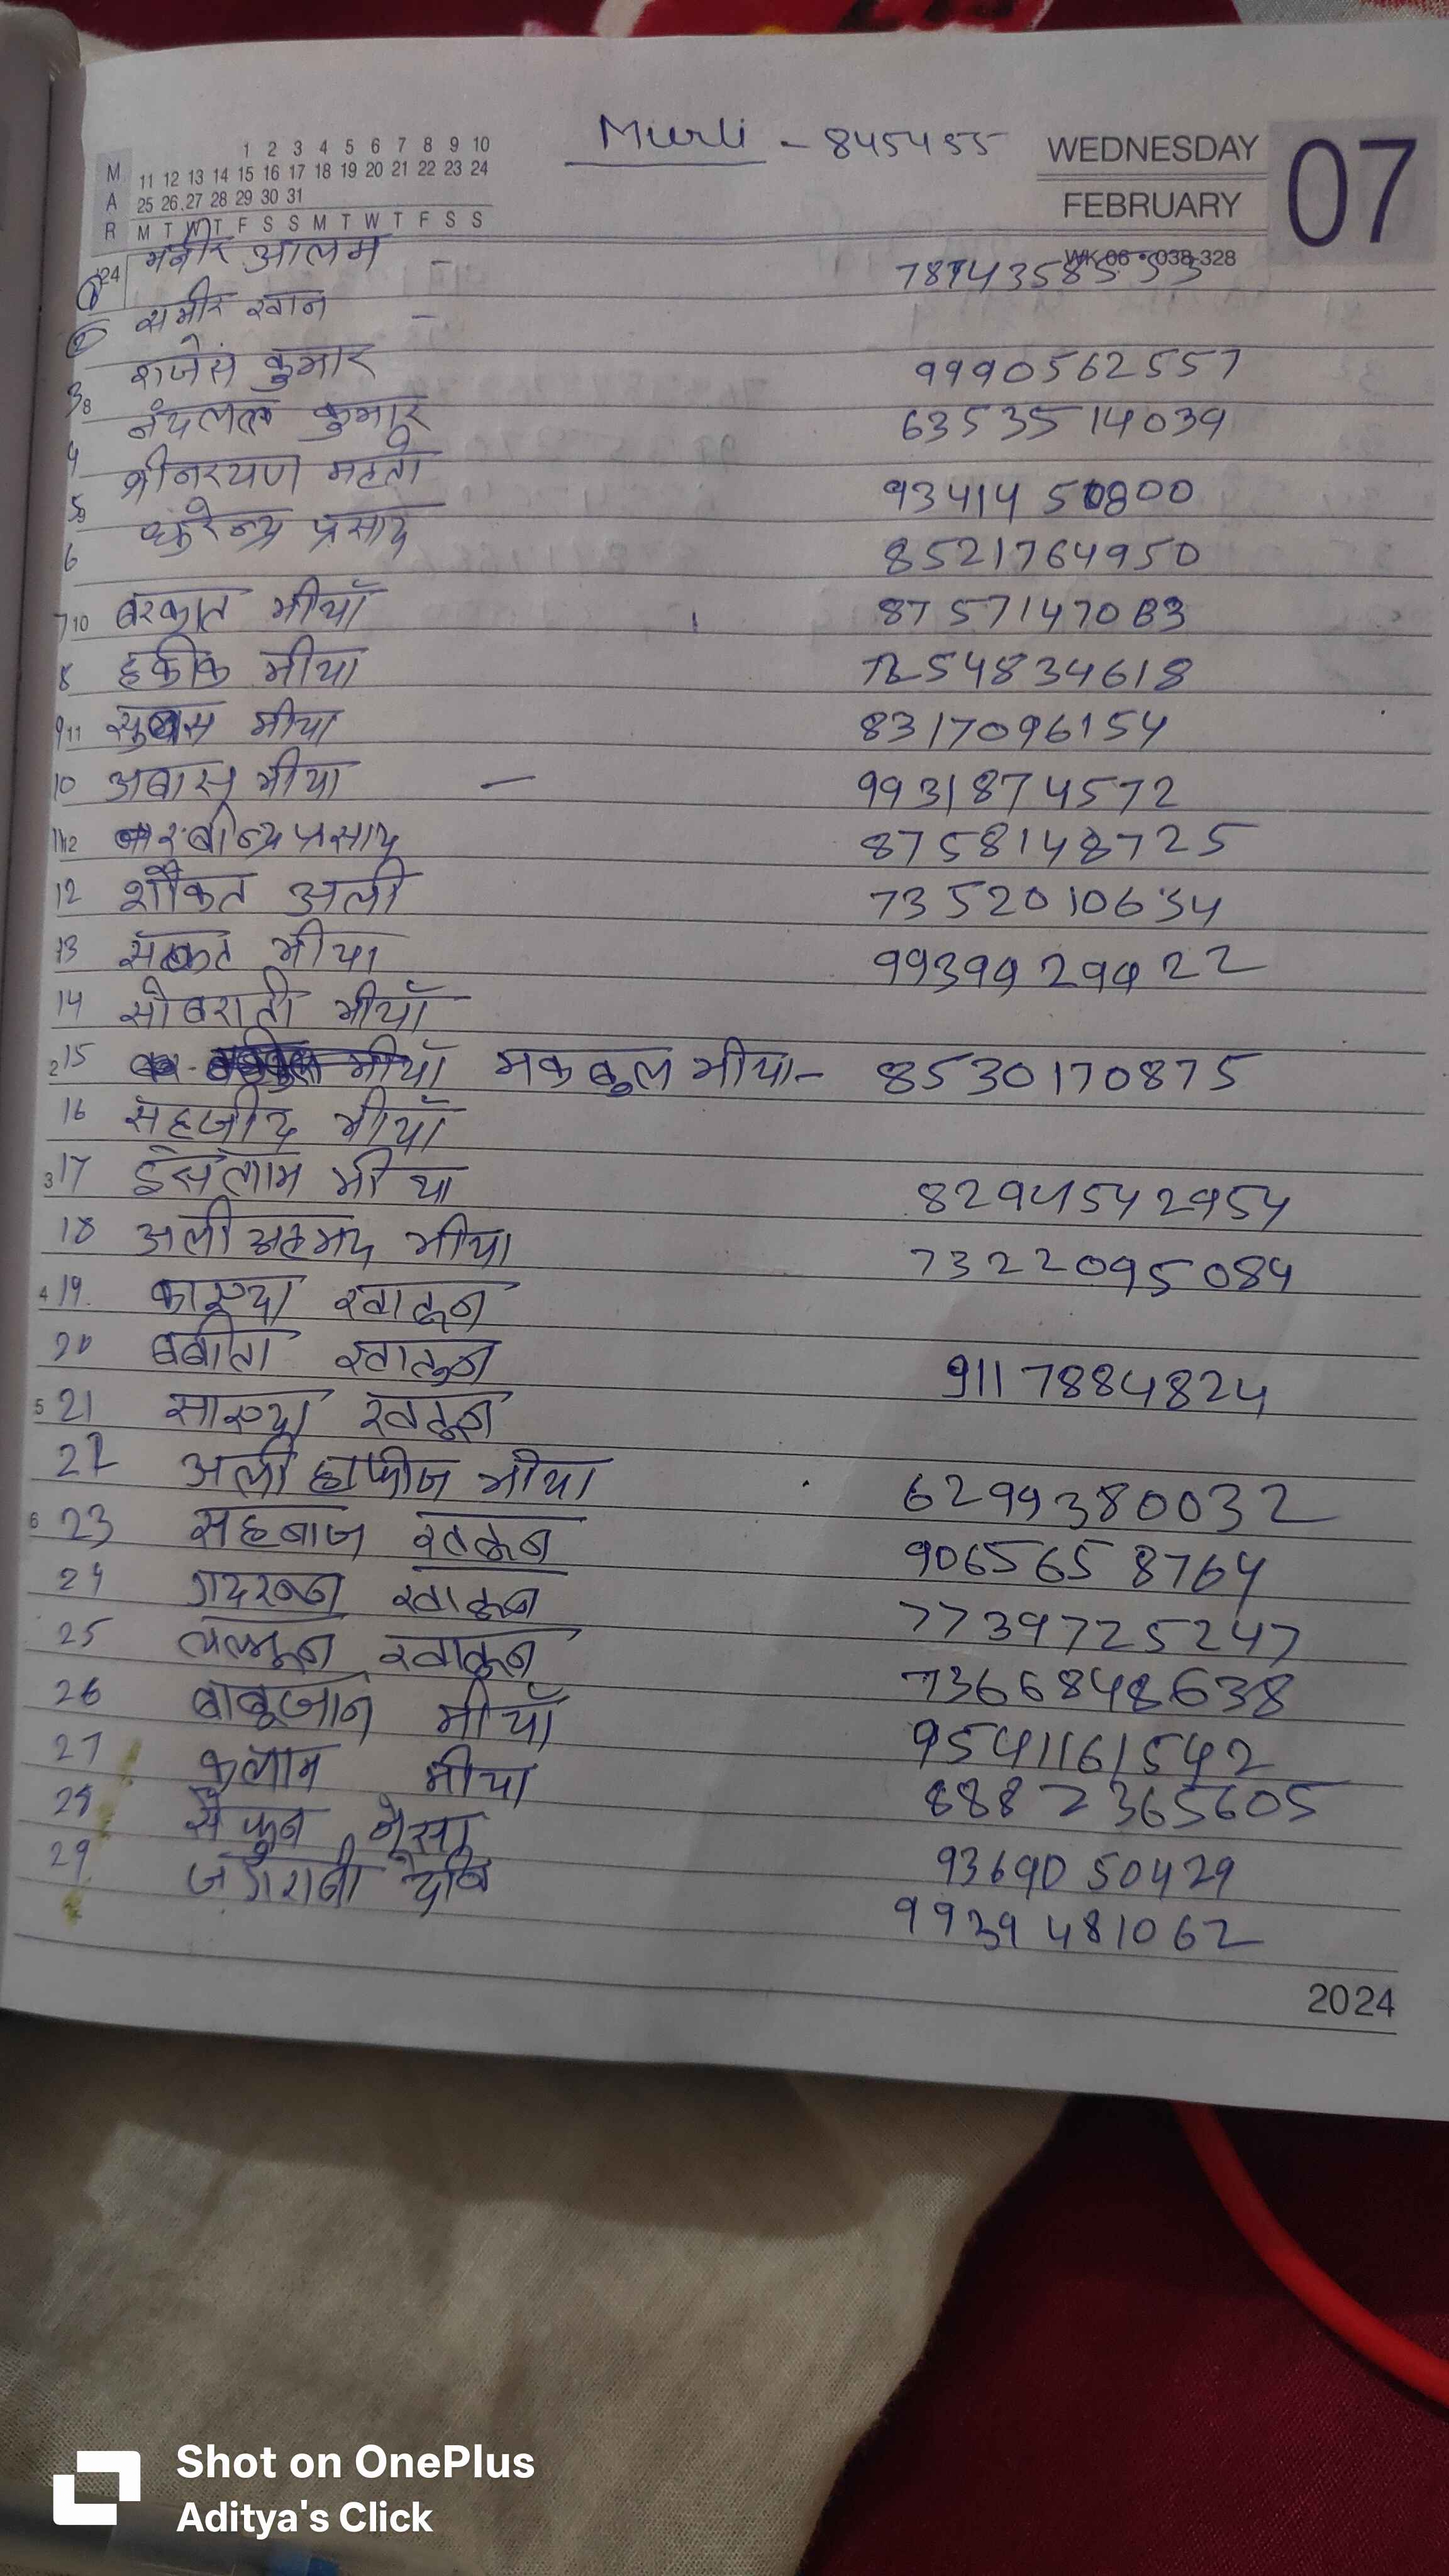 Murli - 845455
WEDNESDAY
FEBRUARY
07
WK 06 • 038-328
1 2 3 4 5 6 7 8 9 10
11 12 13 14 15 16 17 18 19 20 21 22 23 24
25 26 27 28 29 30 31
M T W T F S S M T W T F S S
MAR '24
1 आलम -
2 समीर खान -
3 राजेस कुमार 9990562557
4 नंदलाल कुमार 6353514039
5 श्रीनरयण महतो
6 प्रसाद 8521764950
7 बरकात मीयाँ
8 हकीक मीया
9 मीया 8317096154
10 अबास मीया - 9931874572
11 रबीन्द्र प्रसाद 8758148725
12 शौकत अली 7352010634
13 मीया 9939929922
14 सोबराती मीयाँ
15 मीयाँ मकबुल मीया - 8530170875
16 सहजीद मीयाँ
17 इसलाम मीया 8294542954
18 अली अहमद मीया 7322095084
19 खातून
20 बबीता खातुन 9117884824
21 खतून
22 अली हाफीज मीया 6299380032
23 सहबाज खतून 9065658764
24 खातून 7739725247
25 खातून 7366848638
26 बाबूजान मीयाँ 9541161542
27 कलाम मीया 88872365605
28 सैफुन नेसा 9369050429
29 जगरानी देवि 9939481062
2024
Shot on OnePlus
Aditya's Click